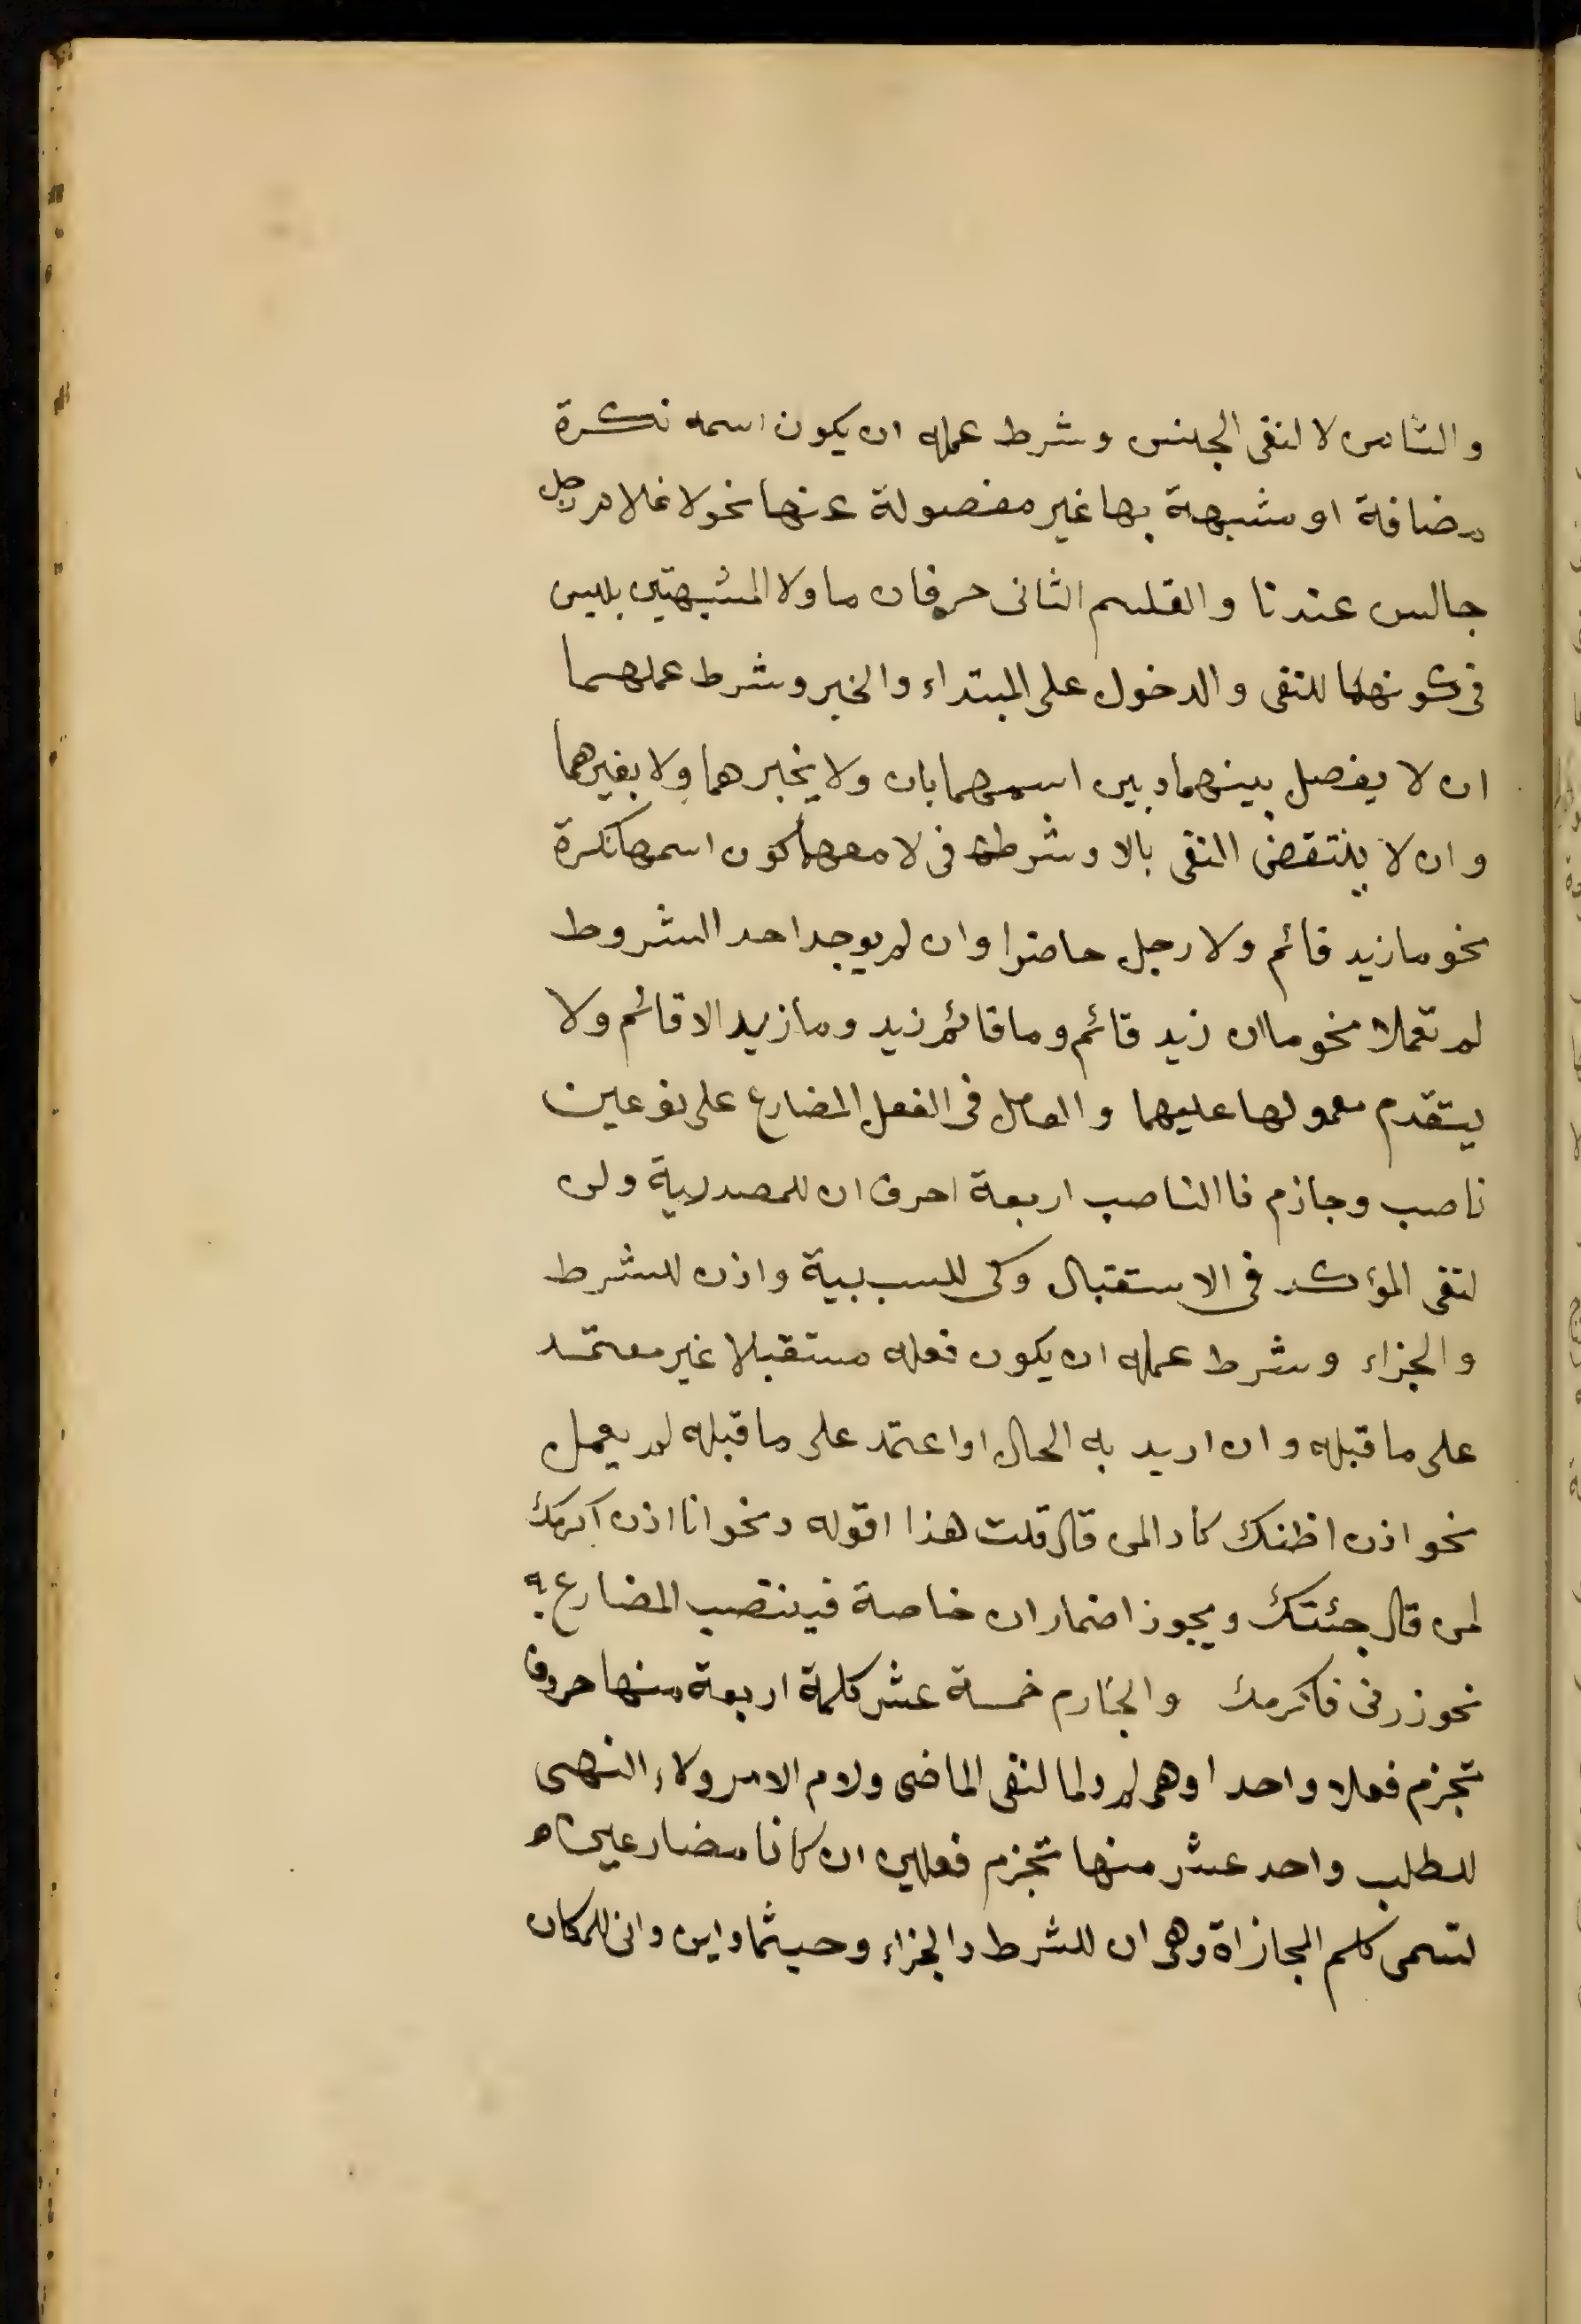 والثامن لا لنفى الجنس وشرط عمله ان يكون اسمه نكرة
مضافة او مشبهة بها غير مفصولة عنها نحو لا غلام رجل
جالس عندنا والقسم الثانى حرفان ما ولا المشبهتين بليس
فى كونهما للنفى والدخول على المبتداء والخبر وشرط عملهما
ان لا يفصل بينهما وبين اسمهما بان ولا بخبرهما ولا بغيرهما
وان لا ينتقض النفى بالا وشرط فى لا معهما كون اسمها نكرة
نحو ما زيد قائم ولا رجل حاضرا وان لم يوجد احد الشروط
لم تعملا نحو ما ان زيد قائم وما قائم زيد وما زيد الا قائم ولا
يتقدم معمولها عليهما والعامل فى الفعل المضارع على نوعين
ناصب وجازم فاالناصب اربعة احرف ان للمصدرية ولن
لنفى المؤكد فى الاستقبال وكى للسببية واذن للشرط
والجزاء وشرط عمله ان يكون فعله مستقبلا غير معتمد
على ما قبله وان اريد به الحال او اعتمد على ما قبله لم يعمل
نحو اذن اظنك كاذبا لمن قال قلت هذا القول ونحو انا اذن اكرمك
لمن قال جئتك ويجوز اضمار ان خاصة فينتصب المضارع به
نحو زرنى فاكرمك والجازم خمسة عشر كلمة اربعة منها حروف
تجزم فعلا واحدا وهى لم ولما لنفى الماضى ولام الامر ولاء النهى
للطلب واحد عشر منها تجزم فعلين ان كانا مضارعين
تسمى كلم المجازاة وهى ان للشرط والجزاء وحيثما واين وانى للمكان